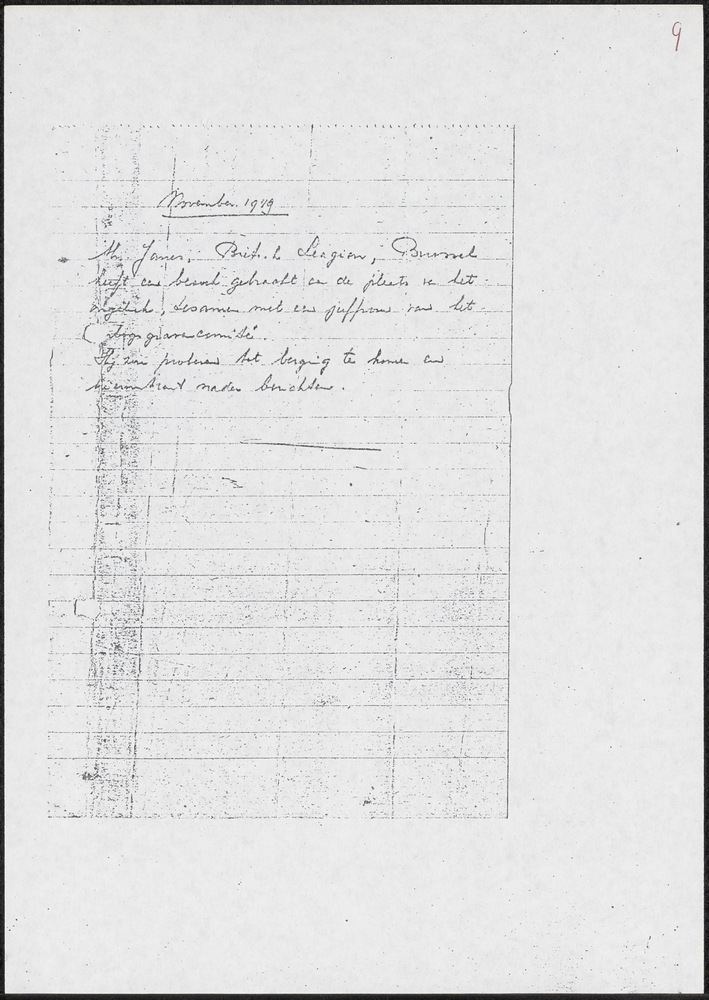 9
November 1949
Mr Jones, British Legion, Brussel
heeft een bezoek gebracht aan de plaats van het
ongeluk, tesamen met een juffrouw van het
oorlogsgravencomité.
Hij zou proberen tot berging te komen en
hieromtrent nader berichten.